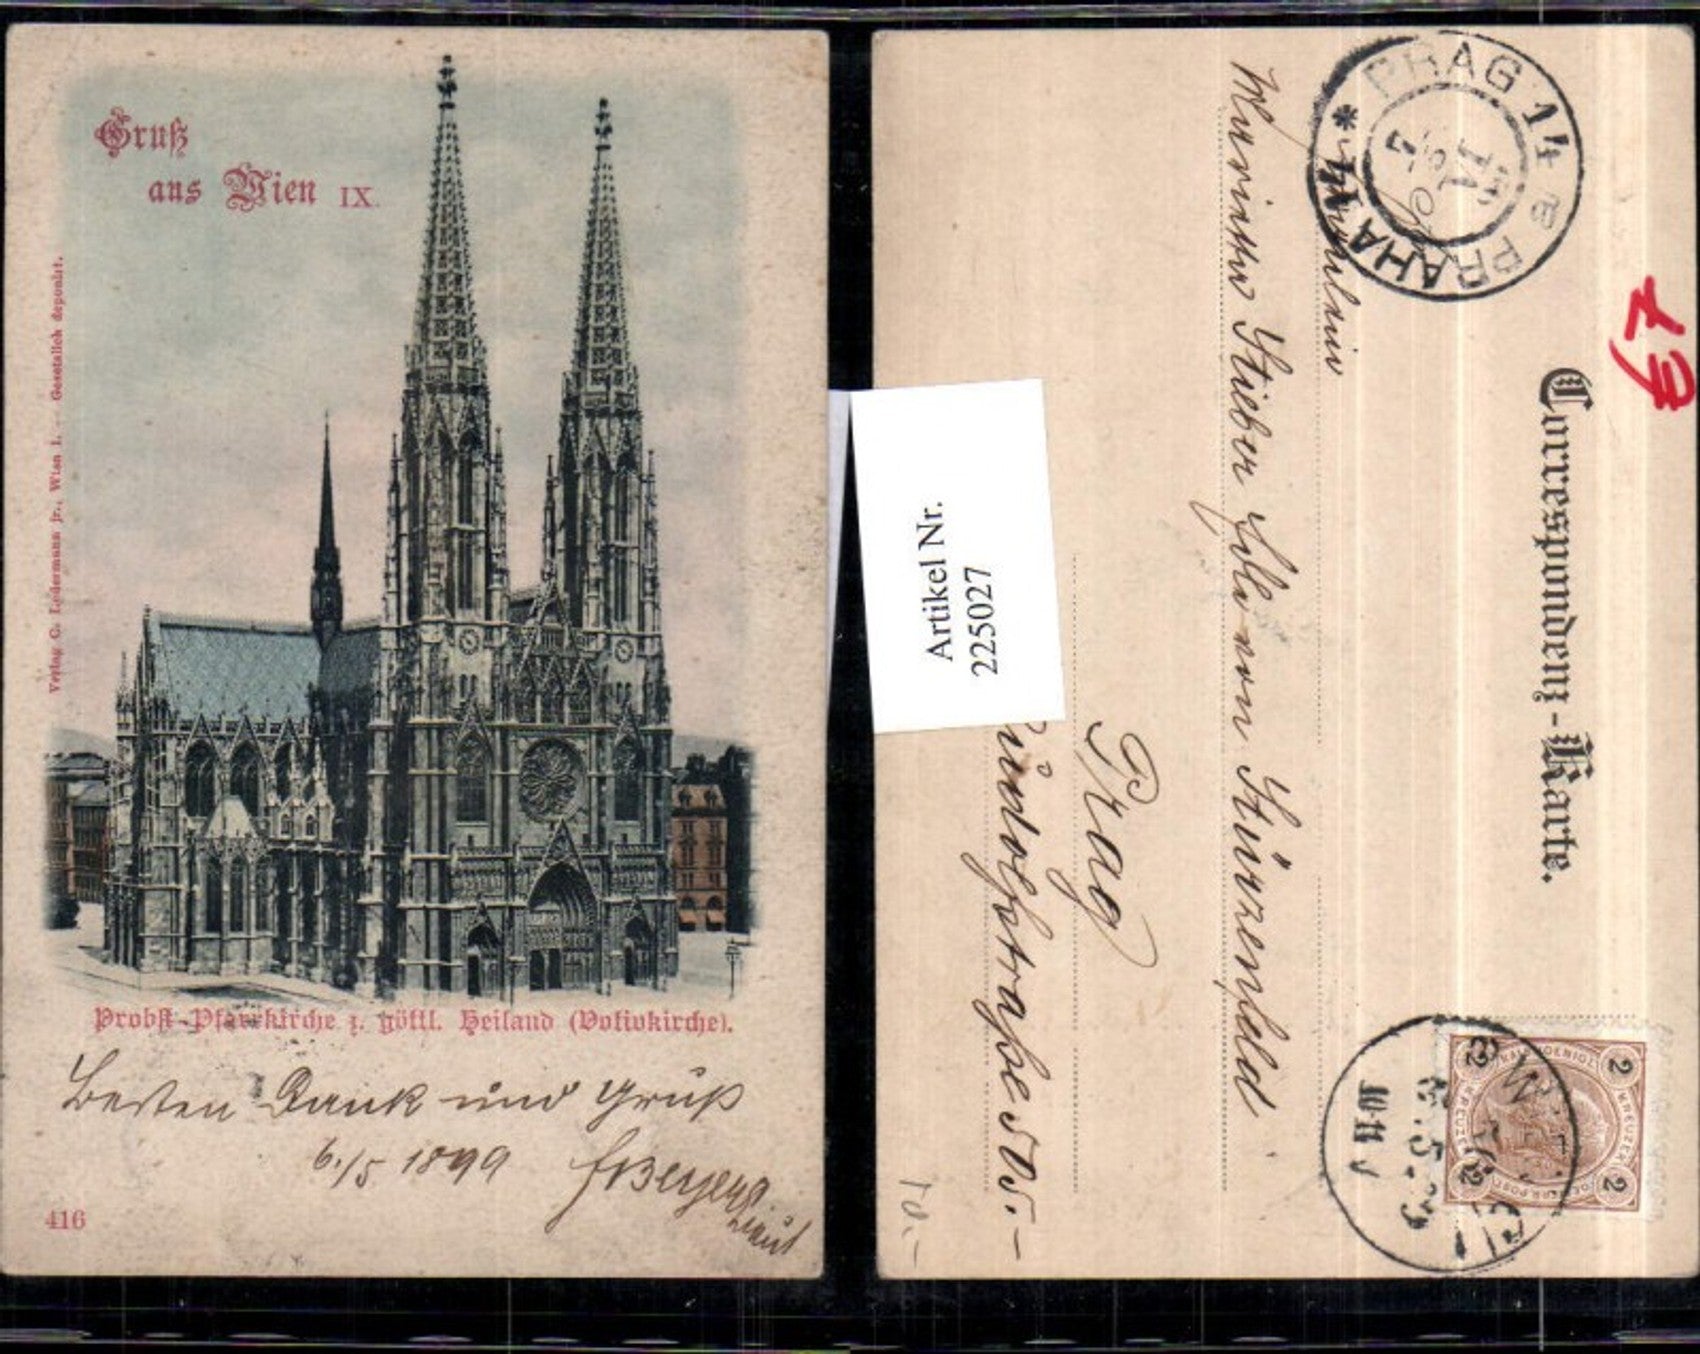 Gruß
aus Wien IX.
Verlag C. Ledermann jr., Wien I. — Gesetzlich deponirt.
Probst-Pfarrkirche z. göttl. Heiland (Votivkirche).
Besten Dank und Gruß
6./5 1899
416
Correspondenz-Karte.
Fräulein
Stieber Edle von Stürzenfeld
Prag
505.-
PRAG 14
PRAHA 14
2 KREUZER 2
10-11
E7
10.-
Artikel Nr.
225027